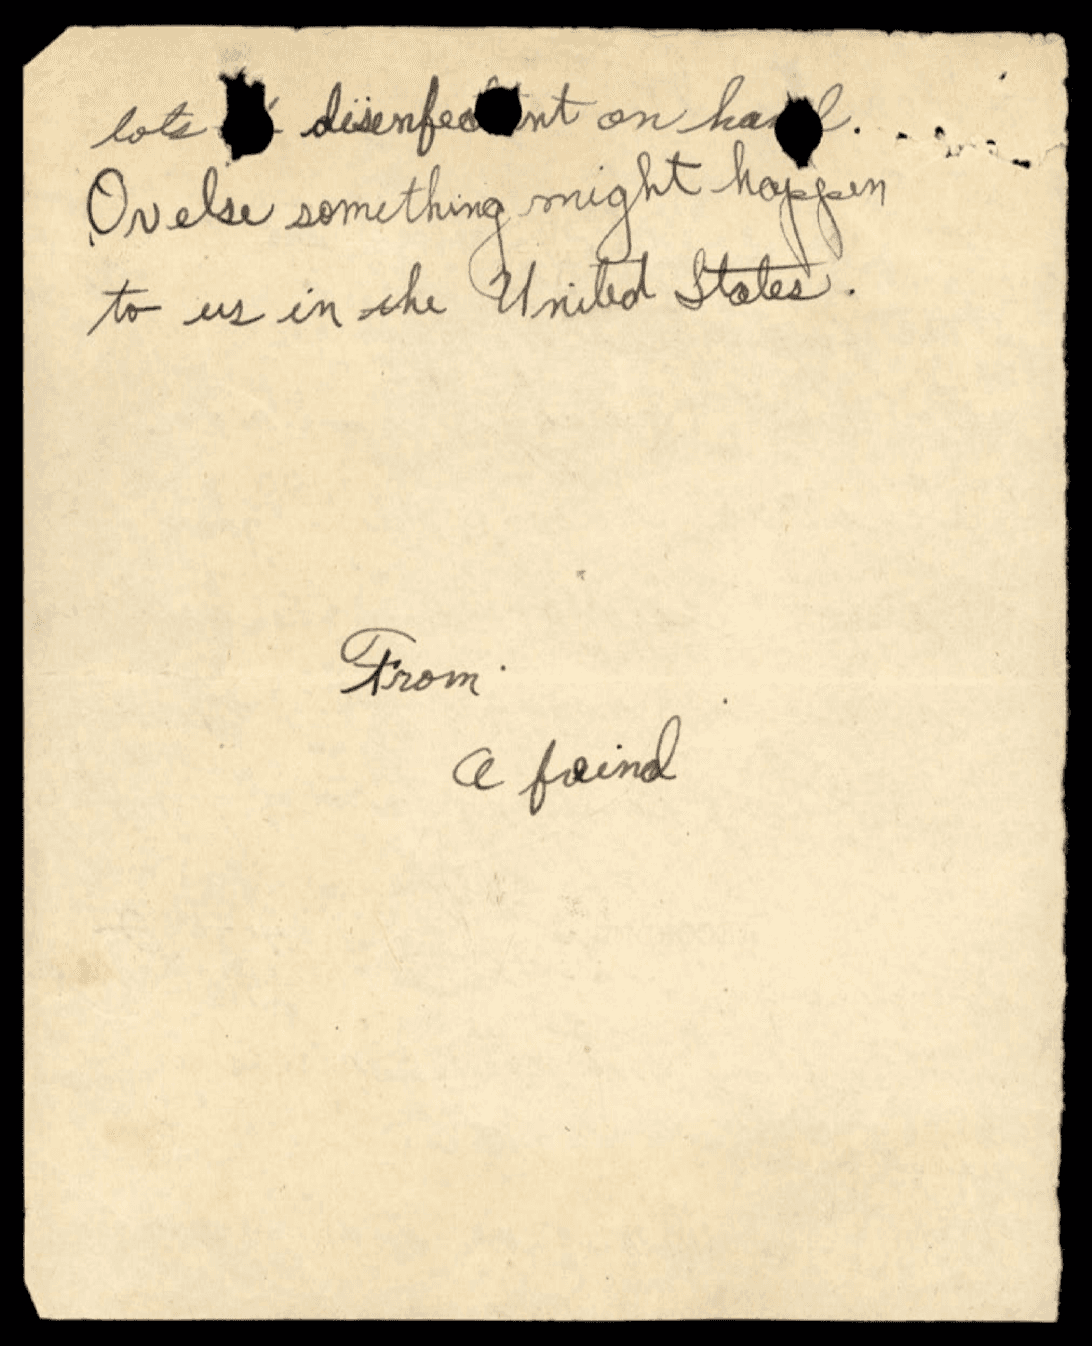 lots disenfectent on hand.
Or else something might happen
to us in the United States.
From
a freind